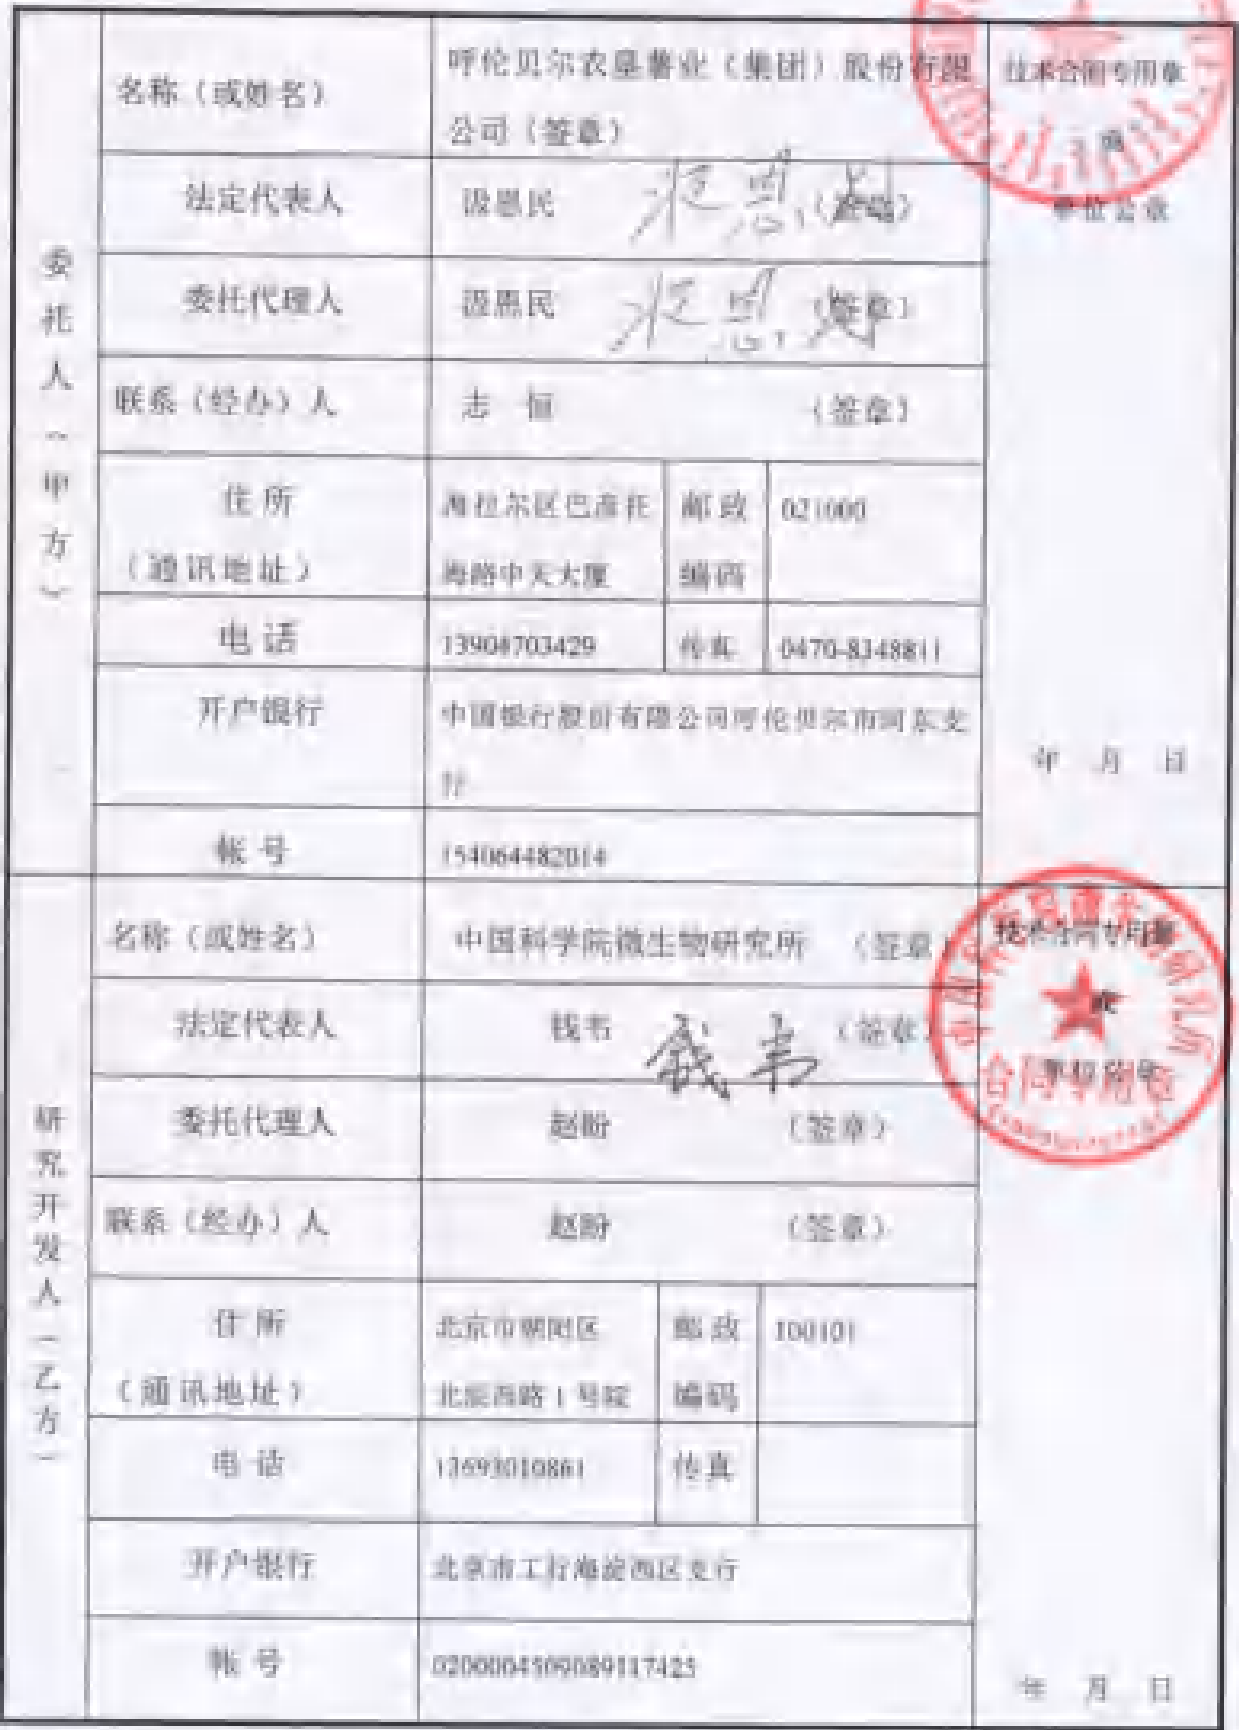 委托人（甲方）
名称（或姓名）
呼伦贝尔农垦薯业（集团）股份有限
公司（签章）
技术合同专用章
或
单位公章
法定代表人
汲恩民
（签章）
委托代理人
汲恩民
（签章）
联系（经办）人
志 恒
（签章）
住 所
（通讯地址）
海拉尔区巴彦托
海路中天大厦
邮 政
编 码
021000
电 话
13904703429
传真
0470-8348811
开户银行
中国银行股份有限公司呼伦贝尔市河东支
行
帐 号
154064482014
年 月 日
研究开发人（乙方）
名称（或姓名）
中国科学院微生物研究所 （签章）
技术合同专用章
或
单位公章
合同专用章
法定代表人
钱韦
钱韦
（签章）
委托代理人
赵盼
（签章）
联系（经办）人
赵盼
（签章）
住 所
（通讯地址）
北京市朝阳区
北辰西路 1 号院
邮 政
编码
100101
电 话
13693010861
传真
开户银行
北京市工行海淀西区支行
帐 号
0200004509089117425
年 月 日